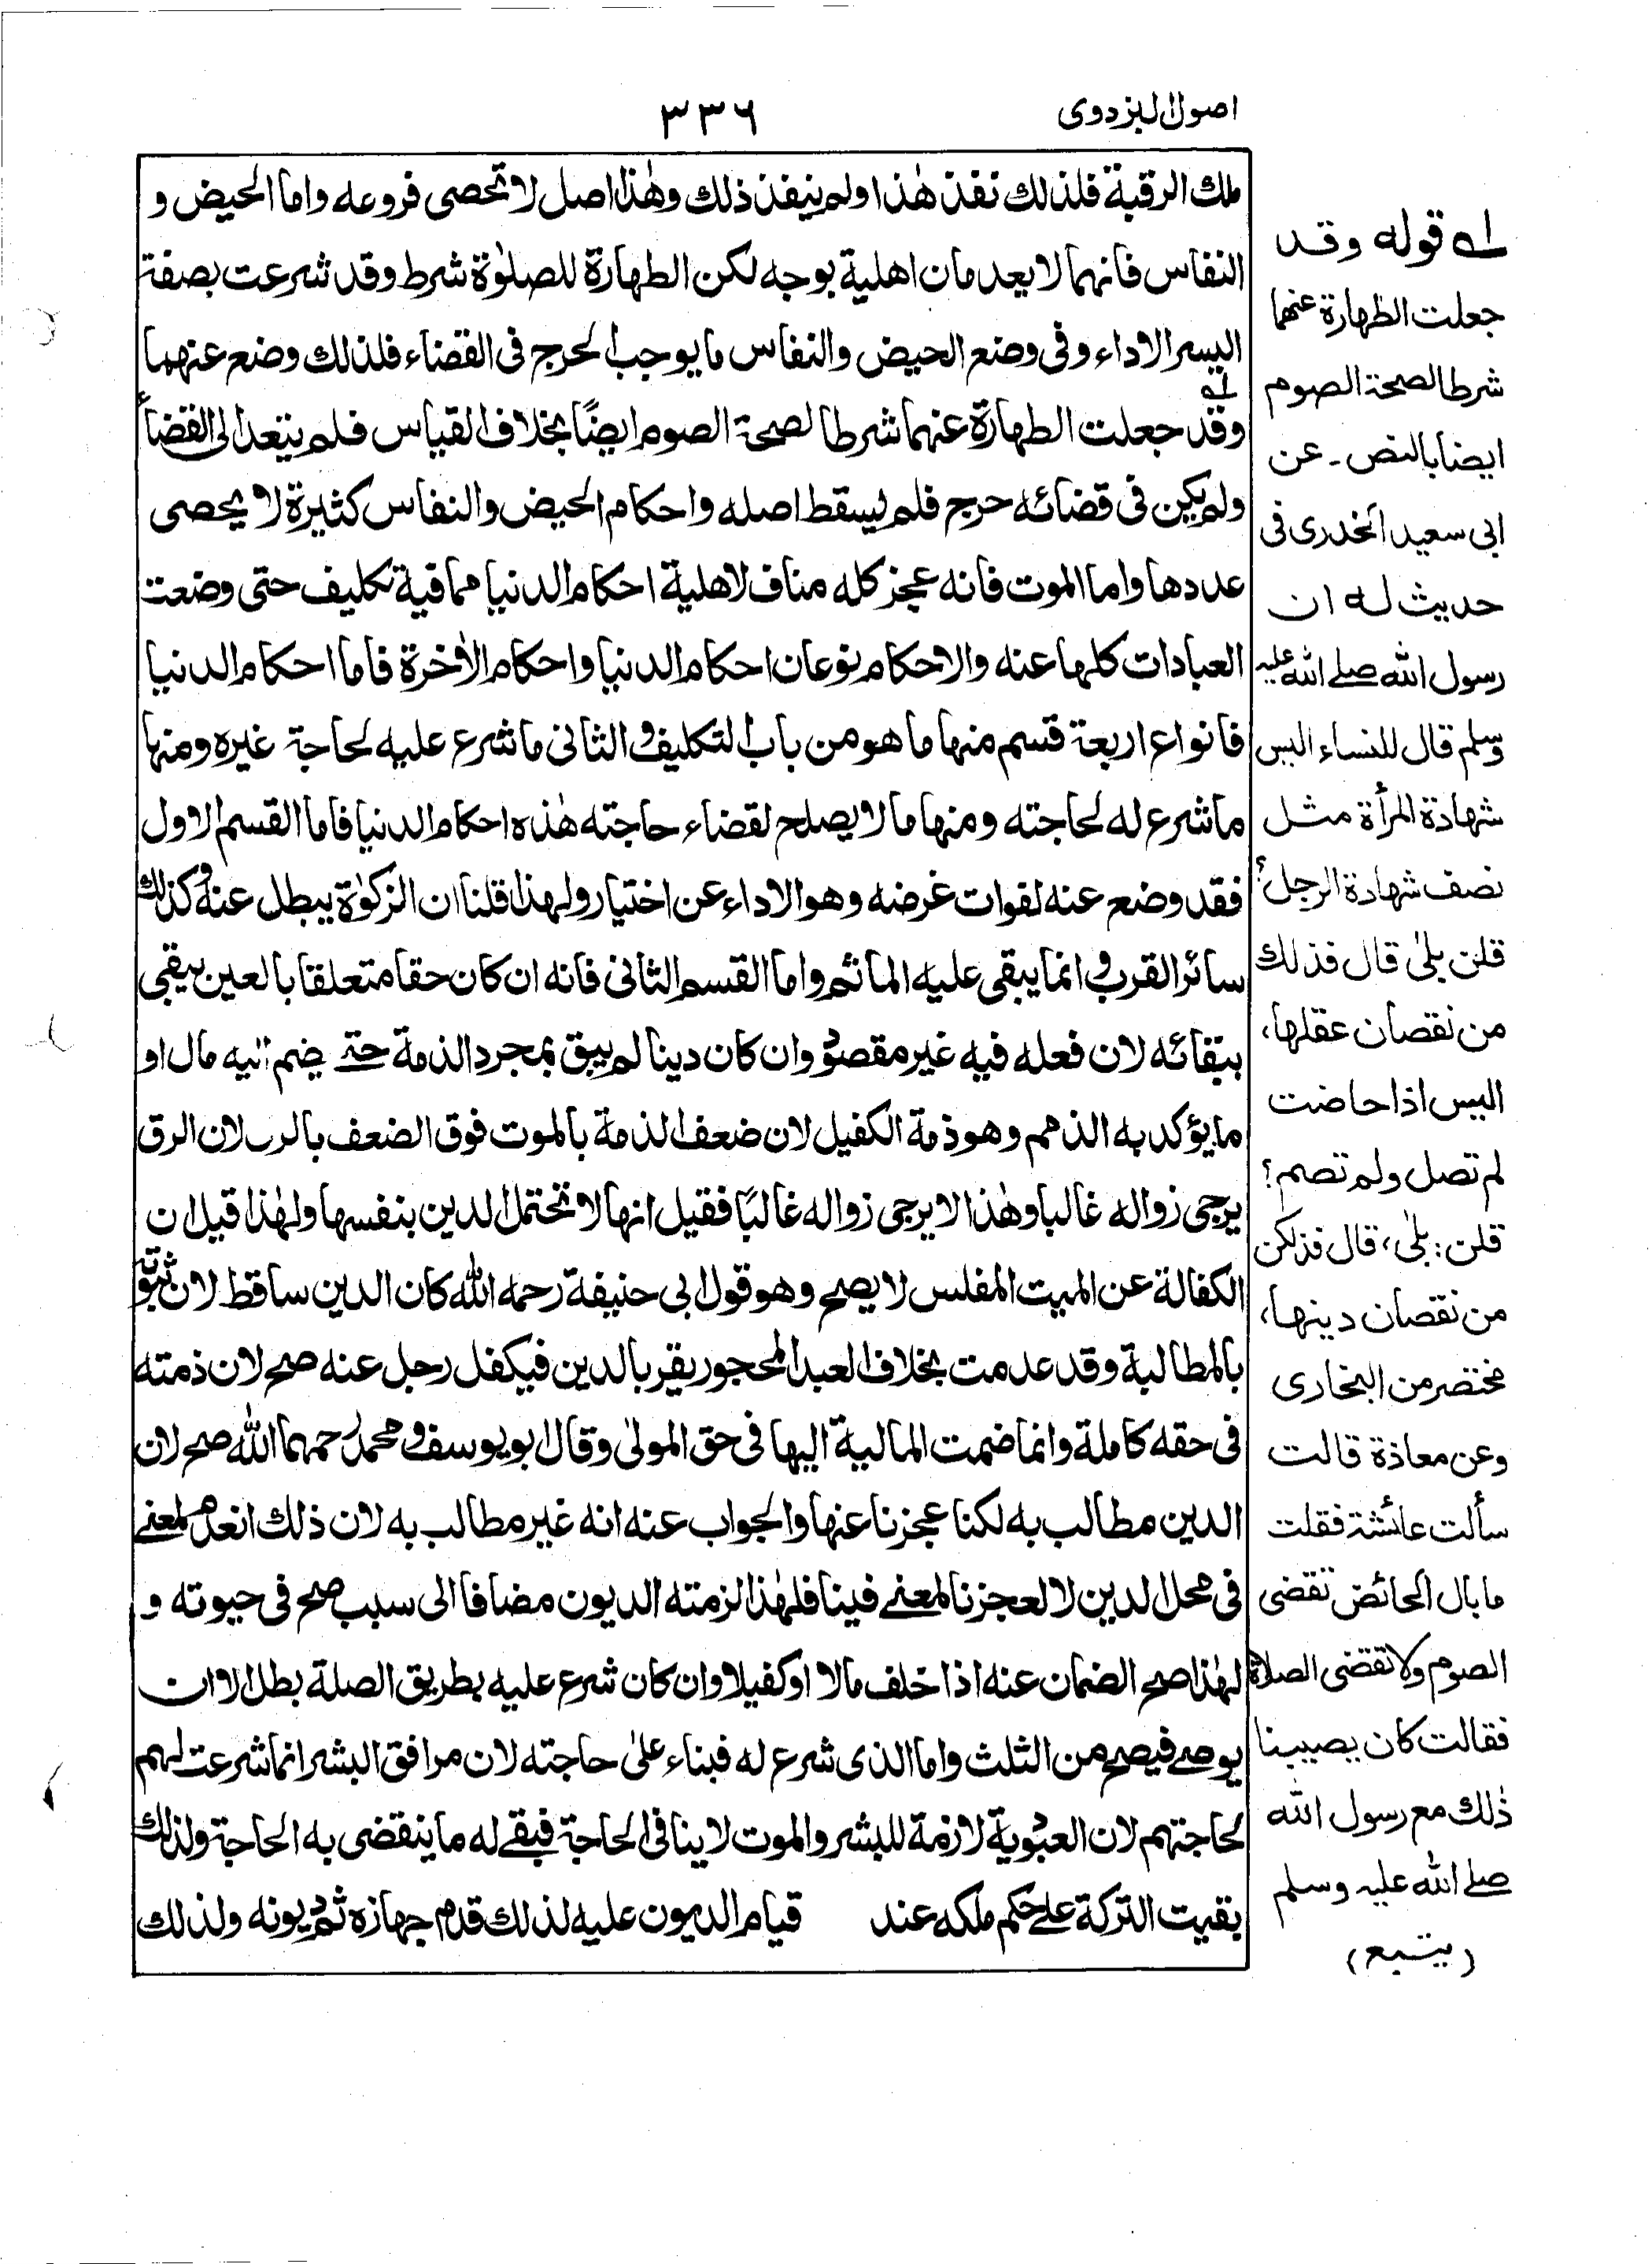 اصول البزدوى
٣٣٦
ملك الرقبة فلذلك نفذ هٰذا ولم ينفذ ذلك وهٰذا اصل لا تحصى فروعه واما الحيض و
النفاس فانهما لا يعدمان اهلية بوجه لكن الطهارة للصلوٰة شرط وقد شرعت بصفة
اليسر الاداء وفى وضع الحيض والنفاس ما يوجب الحرج فى القضاء فلذلك وضع عنهما
وقد جعلت الطهارة عنهما شرطا لصحة الصوم ايضًا بخلاف القياس فلم يتعد الى القضاء
ولم يكن فى قضائه حرج فلم يسقط اصله واحكام الحيض والنفاس كثيرة لا يحصى
عددها واما الموت فانه عجز كله مناف لاهلية احكام الدنيا مما فية تكليف حتى وضعت
العبادات كلها عنه والاحكام نوعان احكام الدنيا واحكام الاٰخرة فاما احكام الدنيا
فانواع اربعة قسم منها ما هو من باب التكليف و الثانى ما شرع عليه لحاجة غيره ومنها
ما شرع له لحاجته ومنها ما لا يصلح لقضاء حاجته هٰذه احكام الدنيا فاما القسم الاول
فقد وضع عنه لفوات غرضه وهو الاداء عن اختيار ولهذا قلنا ان الزكوٰة يبطل عنه وكذلك
سائر القرب و انما يبقى عليه الماثم واما القسم الثانى فانه ان كان حقا متعلقا بالعين يبقى
ببقائه لان فعله فيه غير مقصود وان كان دينا لم يبق بمجرد الذمة حتے يضم اليه مال او
ما يؤكد به الذمم وهو ذمة الكفيل لان ضعف الذمة بالموت فوق الضعف بالرب لان الرق
يرجى زواله غالبا وهٰذا لا يرجى زواله غالبًا فقيل انها لا تحتمل الدين بنفسها ولهٰذا قيل ان
الكفالة عن الميت المفلس لا يصح وهو قول ابى حنيفة رحمه الله كان الدين ساقط لان ثبوته
بالمطالبة وقد عدمت بخلاف العبد المحجور يقر بالدين فيكفل رجل عنه صح لان ذمته
فى حقه كاملة وانما ضمت المالية اليها فى حق المولىٰ وقال ابو يوسف و محمد رحمهما الله صح لان
الدين مطالب به لكنا عجزنا عنها والجواب عنه انه غير مطالب به لان ذلك انعدم لمعنے
فى محل الدين لا لعجزنا لمعنے فينا فلهٰذا لزمته الديون مضافا الى سبب صح فى حيوته و
لهٰذا صح الضمان عنه اذا خلف مالا او كفيلا وان كان شرع عليه بطريق الصلة بطل الا ان
يوصے فيصح من الثلث واما الذى شرع له فبناء علىٰ حاجته لان مرافق البشر انما شرعت لهم
لحاجتهم لان العبودية لازمة للبشر والموت لا ينافى الحاجة فبقے له ما ينقضى به الحاجة ولذلك
بقيت التركة علے حكم ملكه عند قيام الديون عليه لذلك قدم جهازه ثم ديونه ولذلك
لے قوله وقد
جعلت الطهارة عنهما
شرطا لصحة الصوم
ايضا بالنص ـ عن
ابى سعيد الخدرى فى
حديث له ان
رسول الله صلے الله عليه
وسلم قال للنساء اليس
شهادة المرأة مثل
نصف شهادة الرجل؟
قلن بلىٰ قال فذلك
من نقصان عقلها،
اليس اذا حاضت
لم تصل ولم تصم؟
قلن: بلىٰ، قال فذلكن
من نقصان دينها،
مختصر من البخارى
وعن معاذة قالت
سألت عائشة فقلت
ما بال الحائض تقضى
الصوم ولا تقضى الصلاة
فقالت كان يصيبنا
ذٰلك مع رسول الله
صلے الله عليه وسلم
(يتبع)